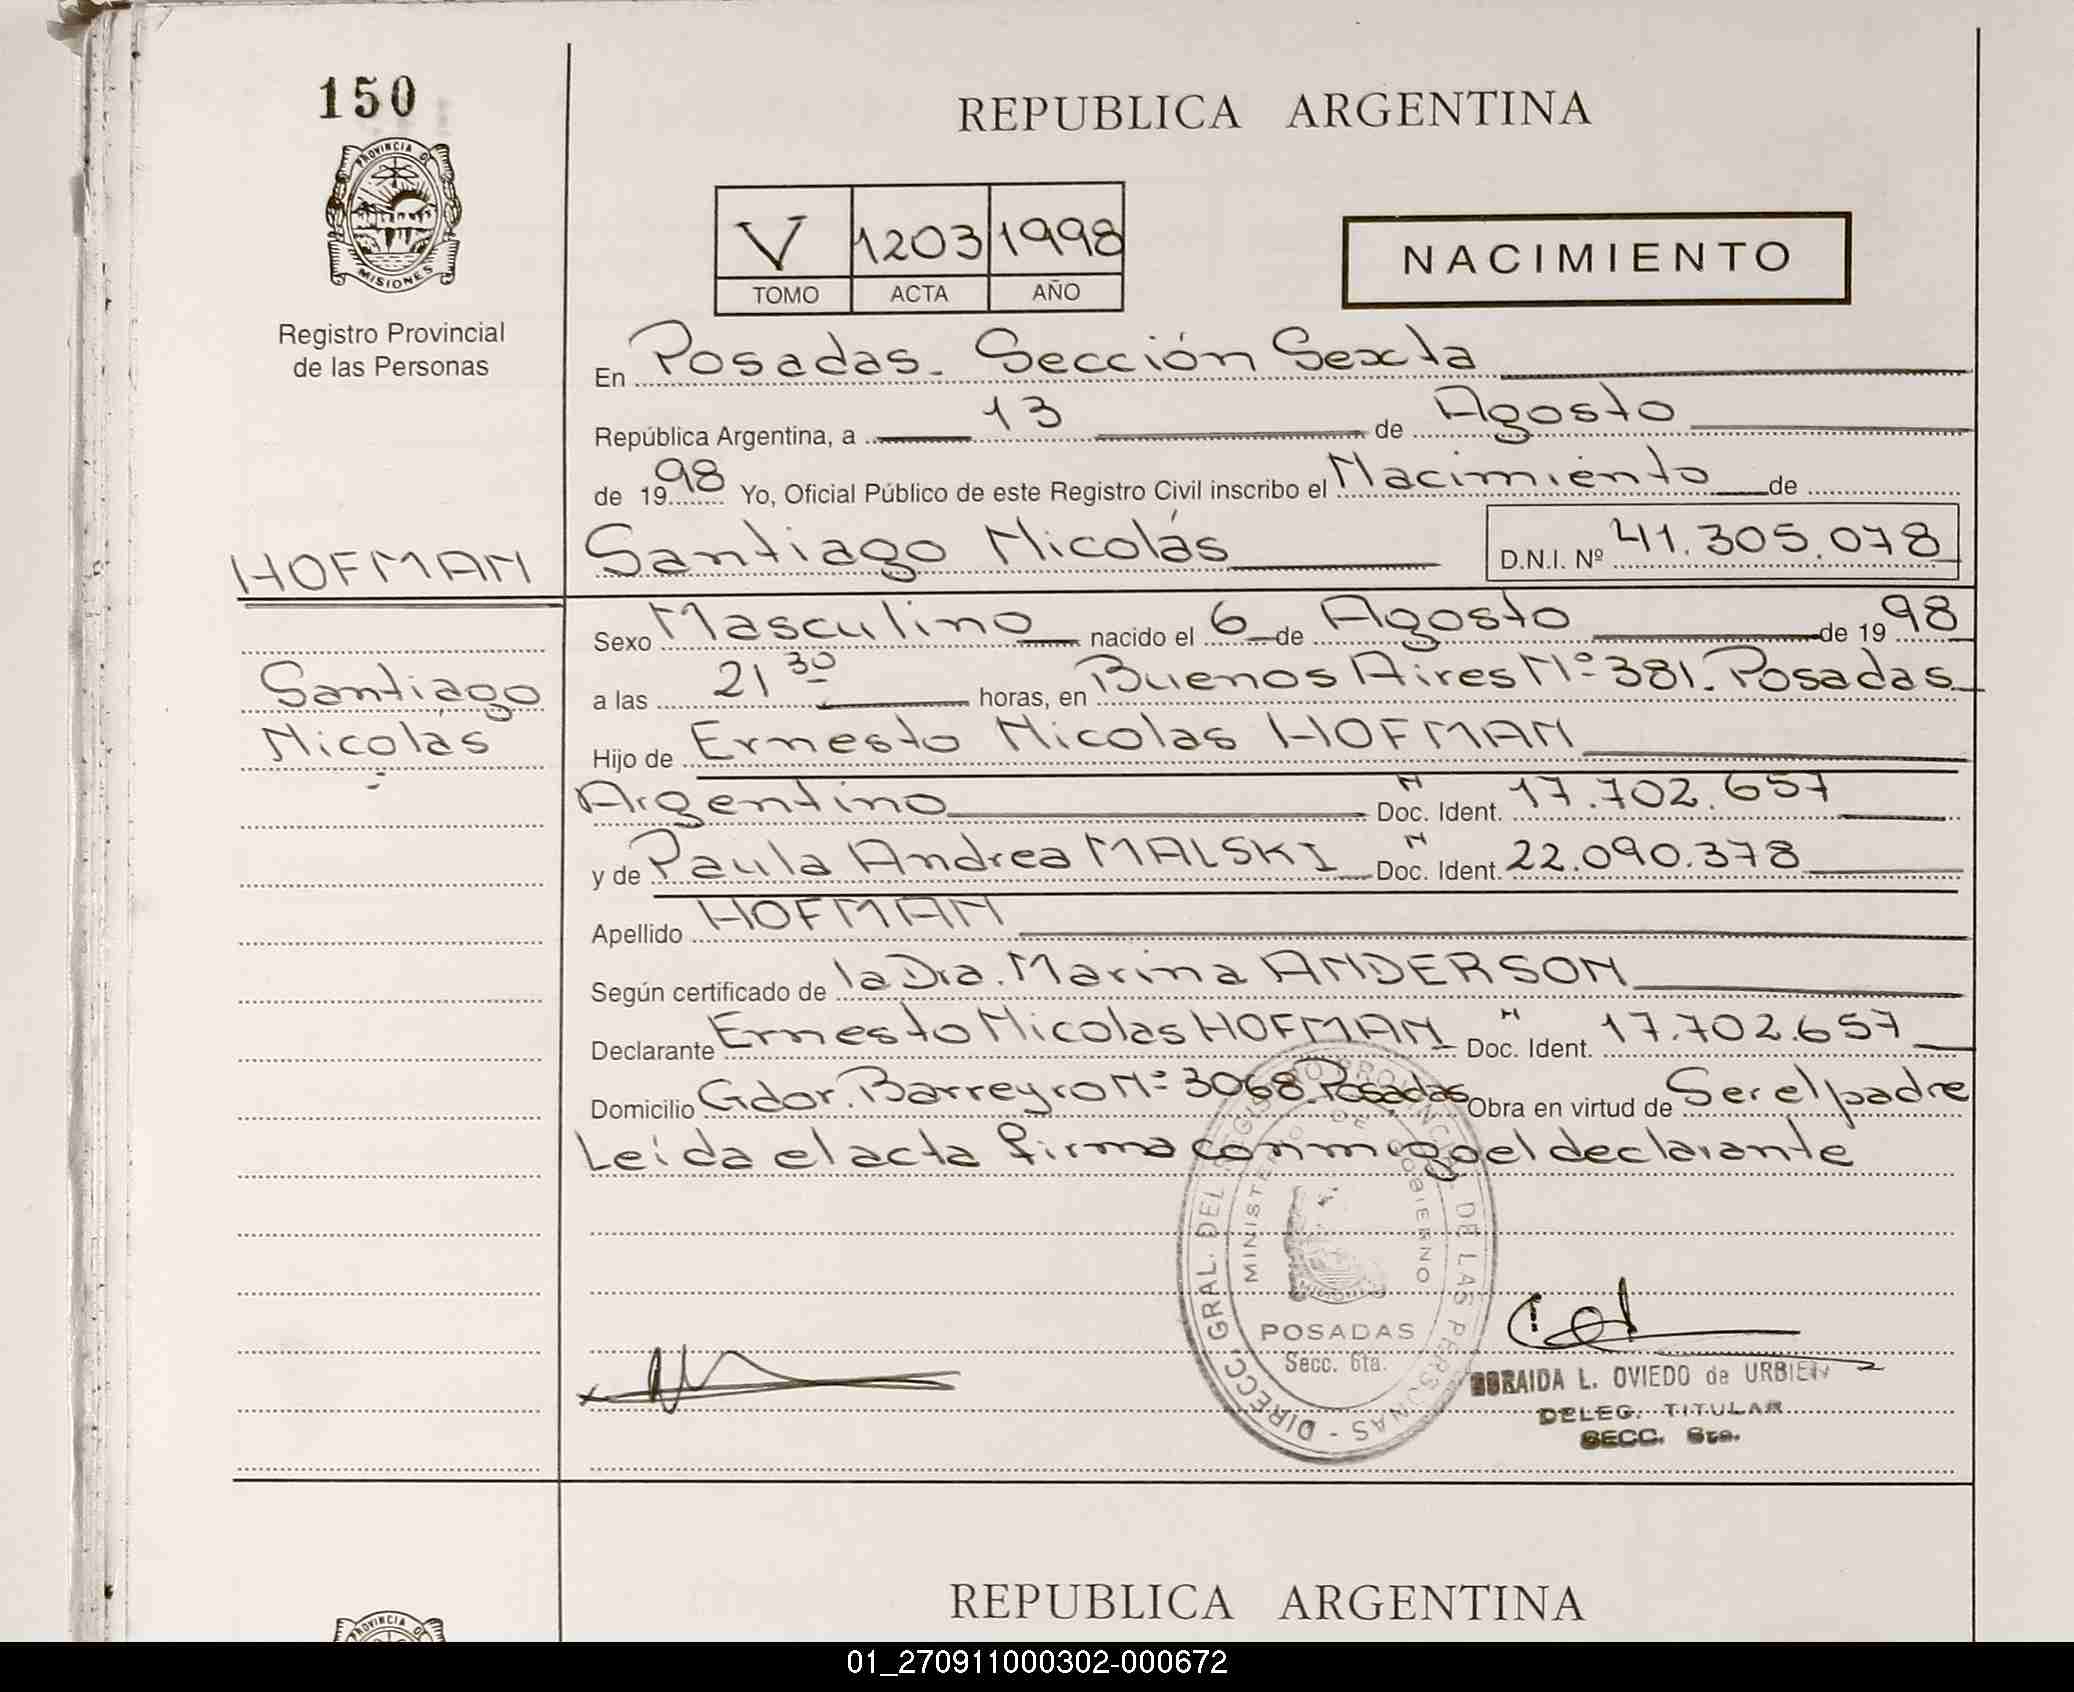 150
PROVINCIA DE
MISIONES
Registro Provincial
de las Personas
REPUBLICA ARGENTINA
V 1203 1998
TOMO ACTA AÑO
NACIMIENTO
En Posadas. Sección Sexta
República Argentina, a 13 de Agosto
de 1998 Yo, Oficial Público de este Registro Civil inscribo el Nacimiento de
HOFMAN
Santiago Nicolás D.N.I. Nº 41.305.078
Sexo Masculino nacido el 6 de Agosto de 1998
Santiago
Nicolás
a las 21 30 horas, en Buenos Aires Nº 381. Posadas
Hijo de Ernesto Nicolas HOFMAN
Argentino N Doc. Ident. 17.702.657
y de Paula Andrea MALSKI N Doc. Ident. 22.090.378
Apellido HOFMAN
Según certificado de la Dra. Marina ANDERSON
Declarante Ernesto Nicolas HOFMAN N Doc. Ident. 17.702.657
Domicilio Gdor. Barreyro Nº 3068. Posadas Obra en virtud de Ser el padre
Leída el acta firma conmigo el declarante
DIRECC. GRAL. DEL REGISTRO PROVINCIAL DE LAS PERSONAS
MINISTERIO DE GOBIERNO
POSADAS
Secc. 6ta.
L. OVIEDO de
DELEG. TITULAR
SECC. 6ta.
REPUBLICA ARGENTINA
PROVINCIA
01_270911000302-000672